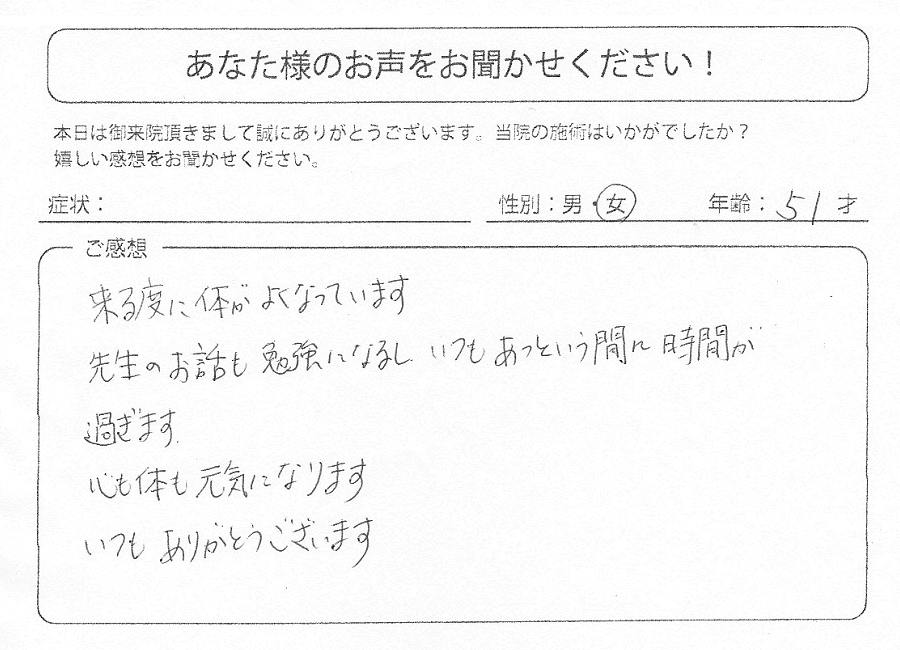 あなた様のお声をお聞かせください！
本日は御来院頂きまして誠にありがとうございます。当院の施術はいかがでしたか？
嬉しい感想をお聞かせください。
症状：
性別：男・女 年齢：51才
ご感想
来る度に体がよくなっています
先生のお話も勉強になるし いつもあっという間に時間が
過ぎます.
心も体も元気になります
いつもありがとうございます